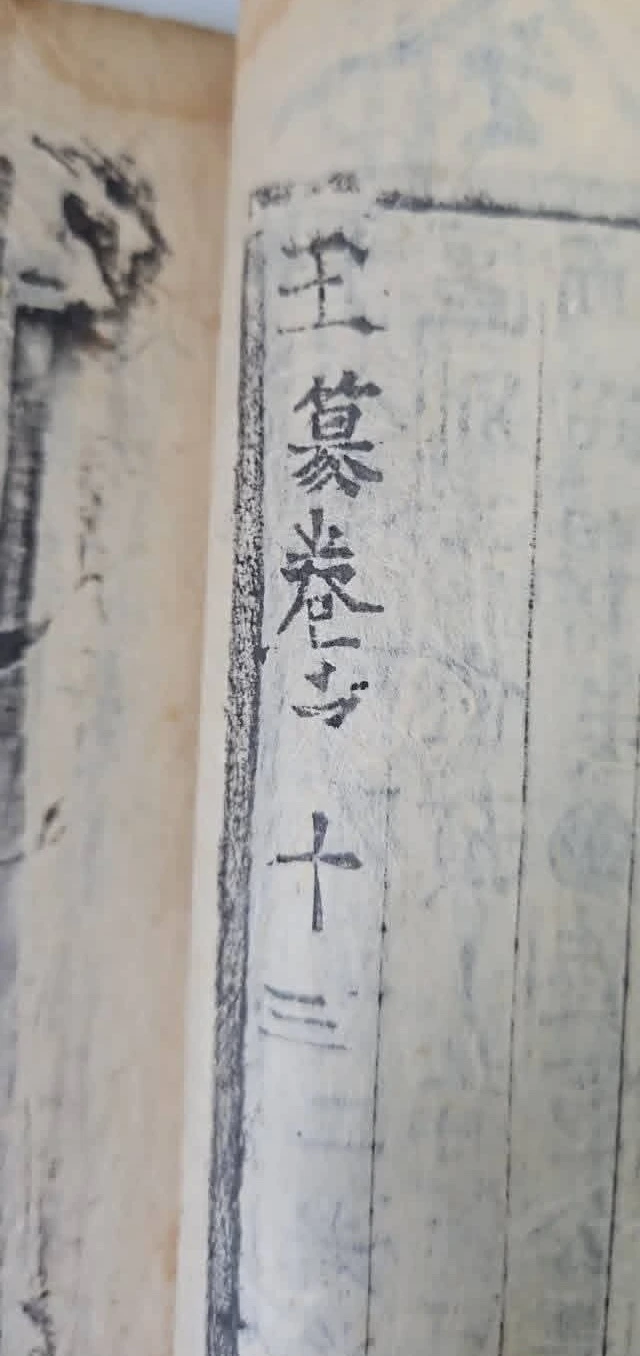 王篡卷十三